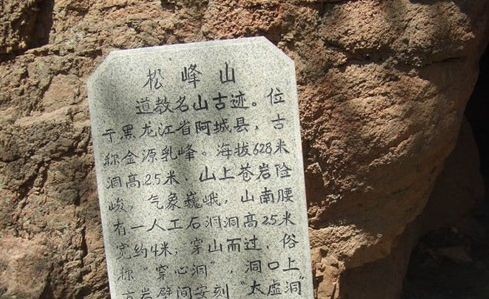 松峰山
道教名山古迹。位
于黑龙江省阿城县，古
称金源乳峰。海拔628米
洞高2.5米、山上苍岩险
峻，气象巍峨，山南腰
有一人工石洞洞高2.5米
宽约4米，穿山而过，俗
称"穿心洞"，洞口上
方岩壁间安刻"太虚洞